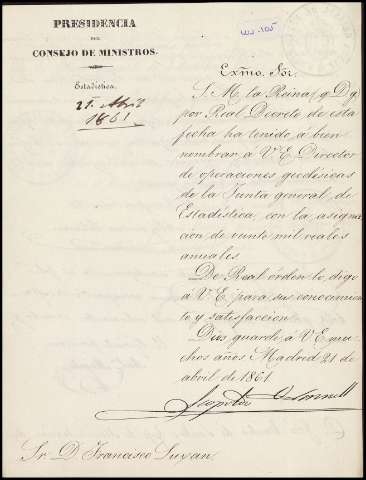 PRESIDENCIA
DEL
CONSEJO DE MINISTROS.
Estadística.
21. Abril
1861
Exmo. Sor.
S. M. la Reina (q. D. g.)
por Real Decreto de esta
fecha ha tenido á bien
nombrar á V. E. Director
de operaciones geodésicas
de la Junta general de
Estadística, con la asigna
cion de veinte mil reales
anuales.
De Real órden lo digo
á V. E. para su conocimien
to y satisfaccion.
Dios guarde á V. E. mu
chos años. Madrid 21 de
abril de 1861
Leopoldo O'Donnell
Sr. D. Francisco Luxan.